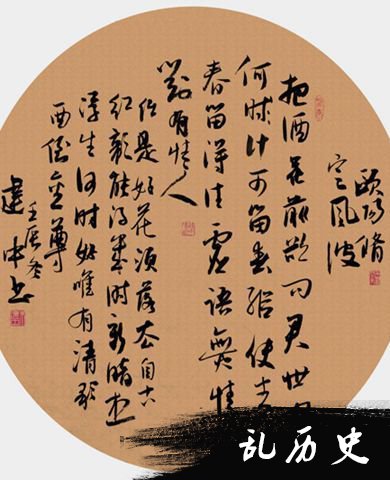 欧阳修
定风波
把酒花前欲问君世
何时计可留春纵使青
春留得住虚语无情
对有情人
任是好花须落去自古
红颜能得几时新暗想
浮生何时好唯有清歌
一曲倒金尊
壬辰冬
建中书
乱历史